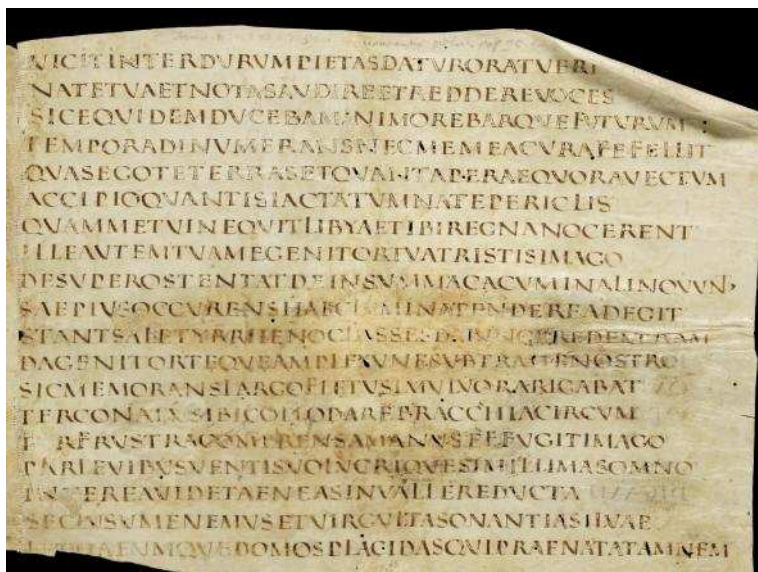 VICITINTERDVRVMPIETASDATVRORATVERI
NATETVAETNOTASAVDIREETREDDEREVOCES
SICEQVIDEMDVCEBAMANIMOREBARQVEFVTVRVM
TEMPORADINVMERANSNECMEMEACVRAFEFELLIT
QVASEGOTETERRASETQVANTAPERAEQVORAVECTVM
ACCIPIOQVANTISIACTATVMNATEPERICLIS
QVAMMETVINEQVITLIBYAETIBIREGNANOCERENT
ILLEAVTEMTVAMEGENITORTVATRISTISIMAGO
DESVPEROSTENTATDEINSVMMACACVMINALINQVVN
SAEPIVSOCCVRENSHAECLIMINATENDEREADEGIT
STANTSALETYRRHENOCLASSESDAIVNGEREDEXTRAM
DAGENITORTEQVEAMPLEXVNESVBTRAHENOSTRO
SICMEMORANSLARGOFLETVSIMVLVORARIGABAT
TERCONATVSIBICOLLODAREBRACCHIACIRCVM
T RFRVSTRACOMPRENSAMANVSEFFVGITIMAGO
PARLEVIBVSVENTISVOLVCRIQVESIMILLIMASOMNO
INTEREAVIDETAENEASINVALLEREDVCTA
SECLVSVMENEMVSETVIRGVLTASONANTIASILVAE
LETHAENMQVEDOMOSPLACIDASQVIPRAENATATAMNEM